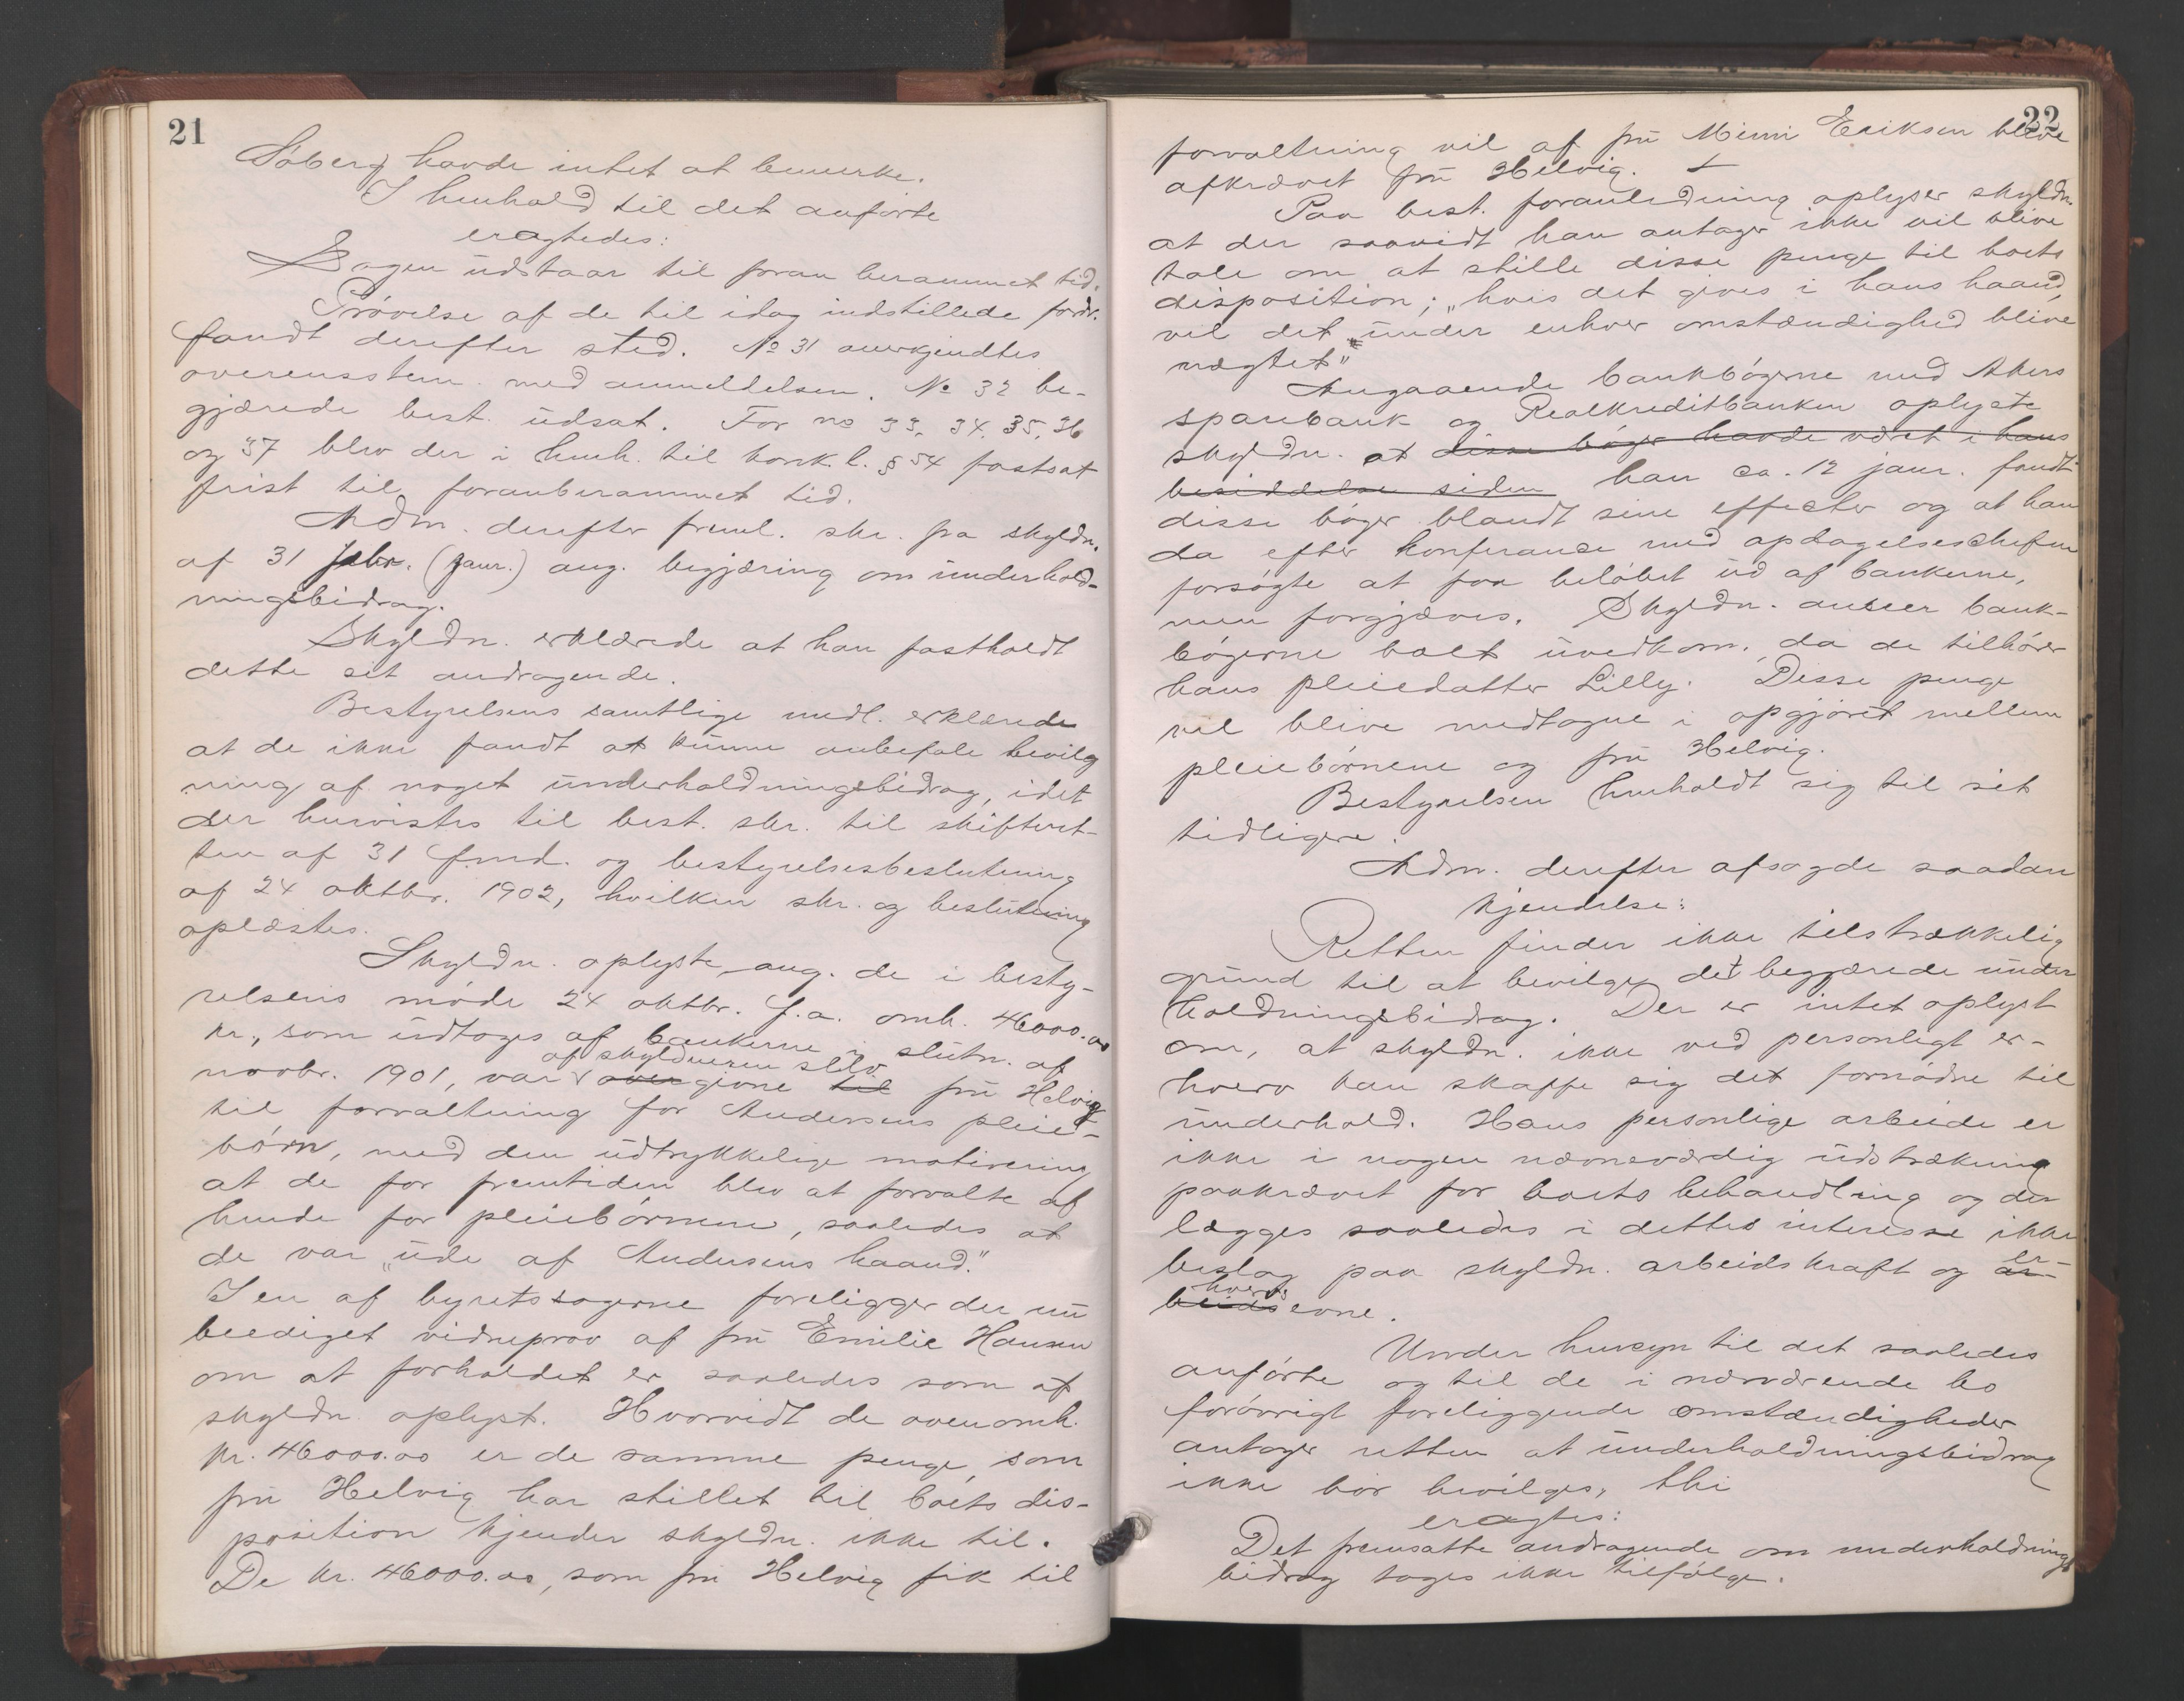 21
Söberg havde intet at bemerke.
I henhold til det anförte
eragtedes:
Sagen udstaar til foran berammet tid.
Prövelse af de til idag indstillede fordr.
fandt derefter sted. No 31 anerkjendtes
overensstem. med anmeldelsen. No 32 be-
gjærede best. udsat. For no 33, 34, 35, 36
og 37 blev der i henh. til konk.l. § 54 fastsat
frist til foranberammet tid.
Adm. derefter freml. skr. fra skyldn.
af 31 febr. (janr.) ang. begjæring om underhold-
ningsbidrag.
Skyldn. erklærede at han fastholdt
dette sit andragende.
Bestyrelsens samtlige medl. erklærede
at de ikke fandt at kunne anbefale bevilg
ning af noget underholdningsbidrag, idet
der henvistes til best. skr. til skifteret-
ten af 31 f.md. og bestyrelsesbeslutning
af 24 oktbr. 1902, hvilken skr. og beslutning
oplæstes.
Skyldn. oplyste ang. de i besty-
relsens möde 24 oktbr. f.a. omh. 46000.00
kr., som udtoges af bankerne i slutn. af
af skyldneren selv
novbr. 1901, var overgivne til fru Helvig
til forvaltning for Andersens pleie-
börn, med den udtrykkelige motivering
at de for fremtiden blev at forvalte af
hende for pleiebörnene, saaledes at
de var „ude af Andersens haand."
I en af byretssagerne foreligger der nu
beediget vidneprov af fru Emilie Hansen
om at forholdet er saaledes som af
skyldn. oplyst. Hvorvidt de ovenomh.
kr. 46000.00 er de samme penge, som
fru Helvig har stillet til boets dis-
position kjender skyldn. ikke til.
De kr. 46000.00, som fru Helvig fik til
22
forvaltning vil af fru Minni Eriksen blive
afkrævet fru Helvig.
Paa best. foranledning oplyser skyldn.
at der saavidt han antager ikke vil blive
tale om at stille disse penge til boets
disposition; „hvis det gives i hans haand,
vil det under enhver omstændighed blive
nægtet"
Angaaende bankbögerne med Akers
sparebank og Realkreditbanken oplyste
skyldn. at disse böger havde været i hans
besiddelse siden han ca. 12 janr. fandt
disse böger blandt sine effecter og at han
da efter konferance med opdagelseschefen
forsögte at faa belöbet ud af bankerne,
men forgjæves. Skyldn. anseer bank-
bögerne boet uvedkom. da de tilhörer
hans pleiedatter Lilly. Disse penge
vil blive medtagne i opgjöret mellem
pleiebörnene og fru Helvig.
Bestyrelsen henholdt sig til sit
tidligere.
Adm. derefter afsagde saadan
kjendelse:
Retten finder ikke tilstrækkelig
grund til at bevilge det begjærede under
holdningsbidrag. Der er intet oplyst
om, at skyldn. ikke ved personligt er-
hverv kan skaffe sig det fornödne til
underhold. Hans personlige arbeide er
ikke i nogen nævneværdig udstrækning
paakrævet for boets behandling og der
lægges saaledes i dettes interesse ikke
beslag paa skyldn. arbeidskraft og ar- er-
hvervs
beids evne.
Under hensyn til det saaledes
anförte og til de i nærværende bo
forövrigt foreliggende omstændigheder
antager retten at underholdningsbidrag
ikke bör bevilges, thi
eragtes:
Det fremsatte andragende om underholdnings
bidrag tages ikke tilfölge.